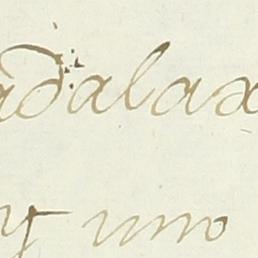 adalax
y uno